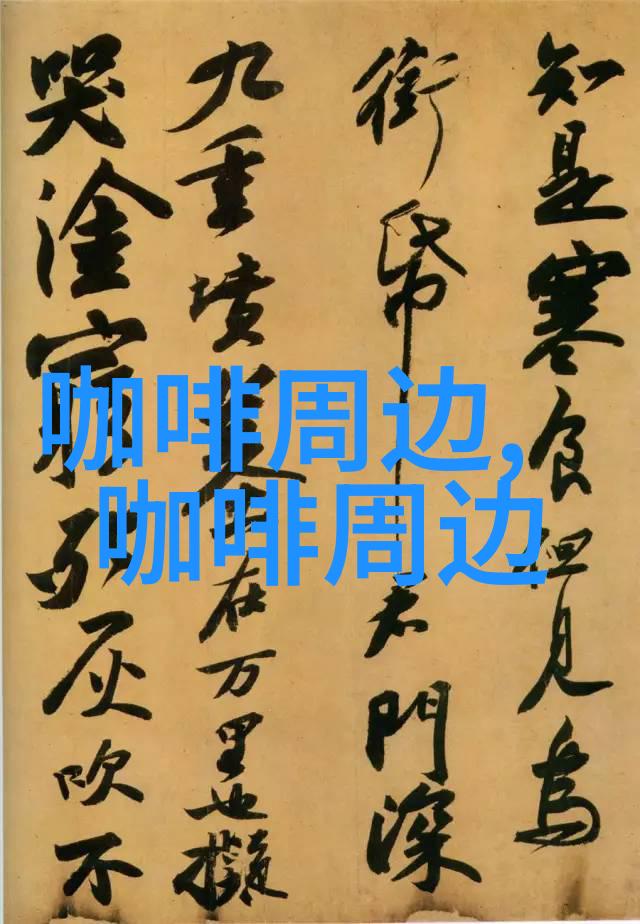 知是寒食但見烏
銜帋君門深
九重墳墓在万里也擬
哭塗窮死灰吹不
咖啡周边,
咖啡周边